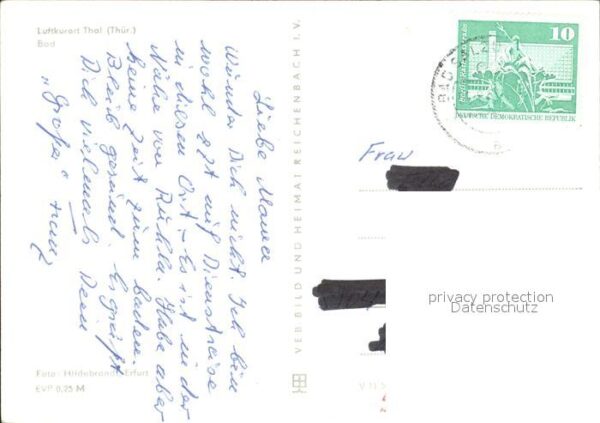 Luftkurort Thal (Thür.)
Bad
Liebe Mama
Wunder Dich nicht. Ich bin
wohl z Zt auf Dienstreise
in diesen Ort. – Es ist in der
Nähe von Ruhla. Habe aber
keine Zeit zum baden.
Bleib gesund. Es grüßt
Dich vielmals Dein
"Großer"
Foto: Hildebrandt, Erfurt
EVP 0,25 M
VEB BILD UND HEIMAT REICHENBACH I. V.
10
DEUTSCHE DEMOKRATISCHE REPUBLIK
BAD
Frau
privacy protection
Datenschutz
V 11 5